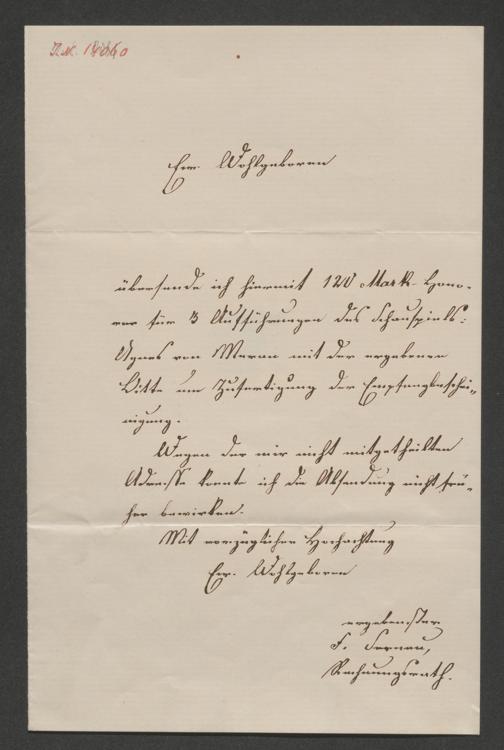 Ew. Wohlgeboren
übersende ich hiermit 120 Mark Hono-
rar für 3 Aufführungen des Schauspiels:
Agnes von Meran mit der ergebenen
Bitte um Zufertigung der Empfangbeschei-
nigung.
Wegen der mir nicht mitgetheilten
Adresse konnte ich die Absendung nicht frü-
her bewirken.
Mit vorzüglicher Hochachtung
Ew. Wohlgeboren
ergebenster
F.
Rechnungsrath.